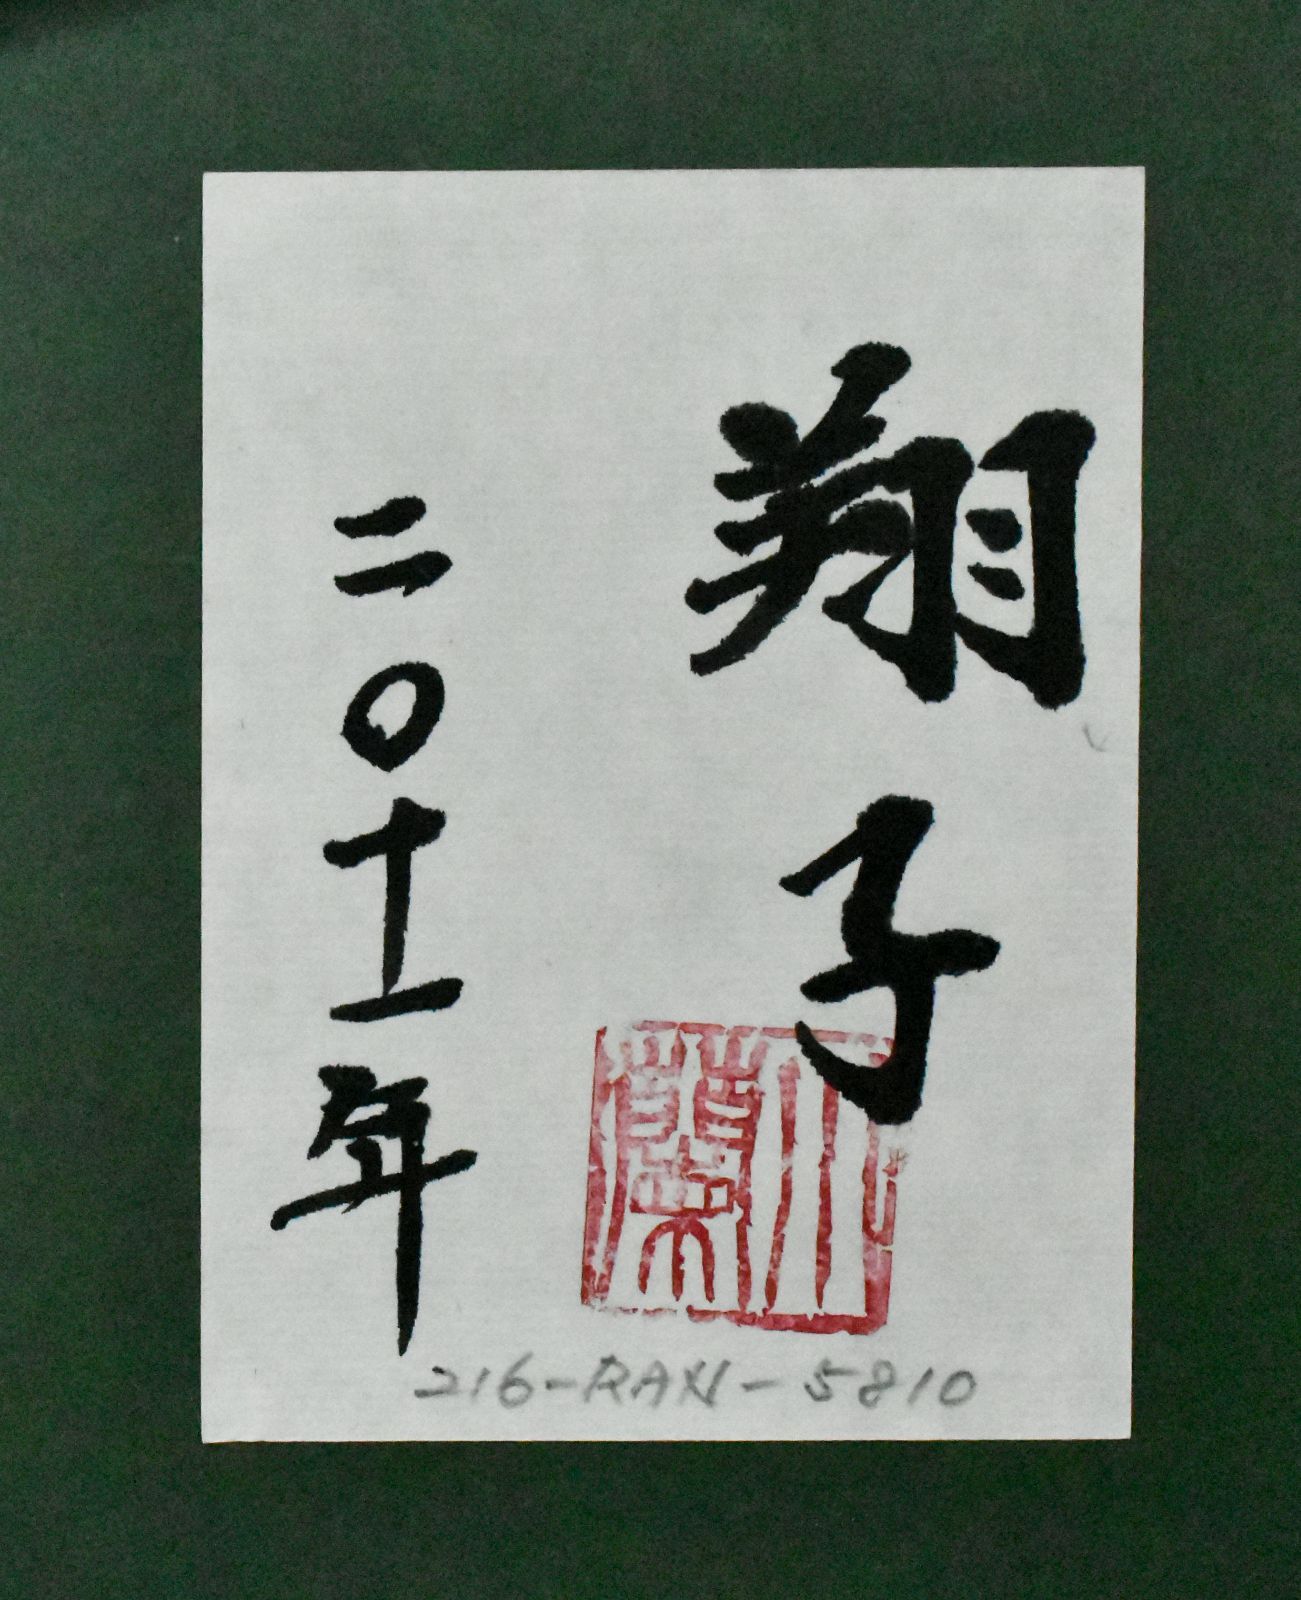 翔子
二〇十一年
216-RAN-5810